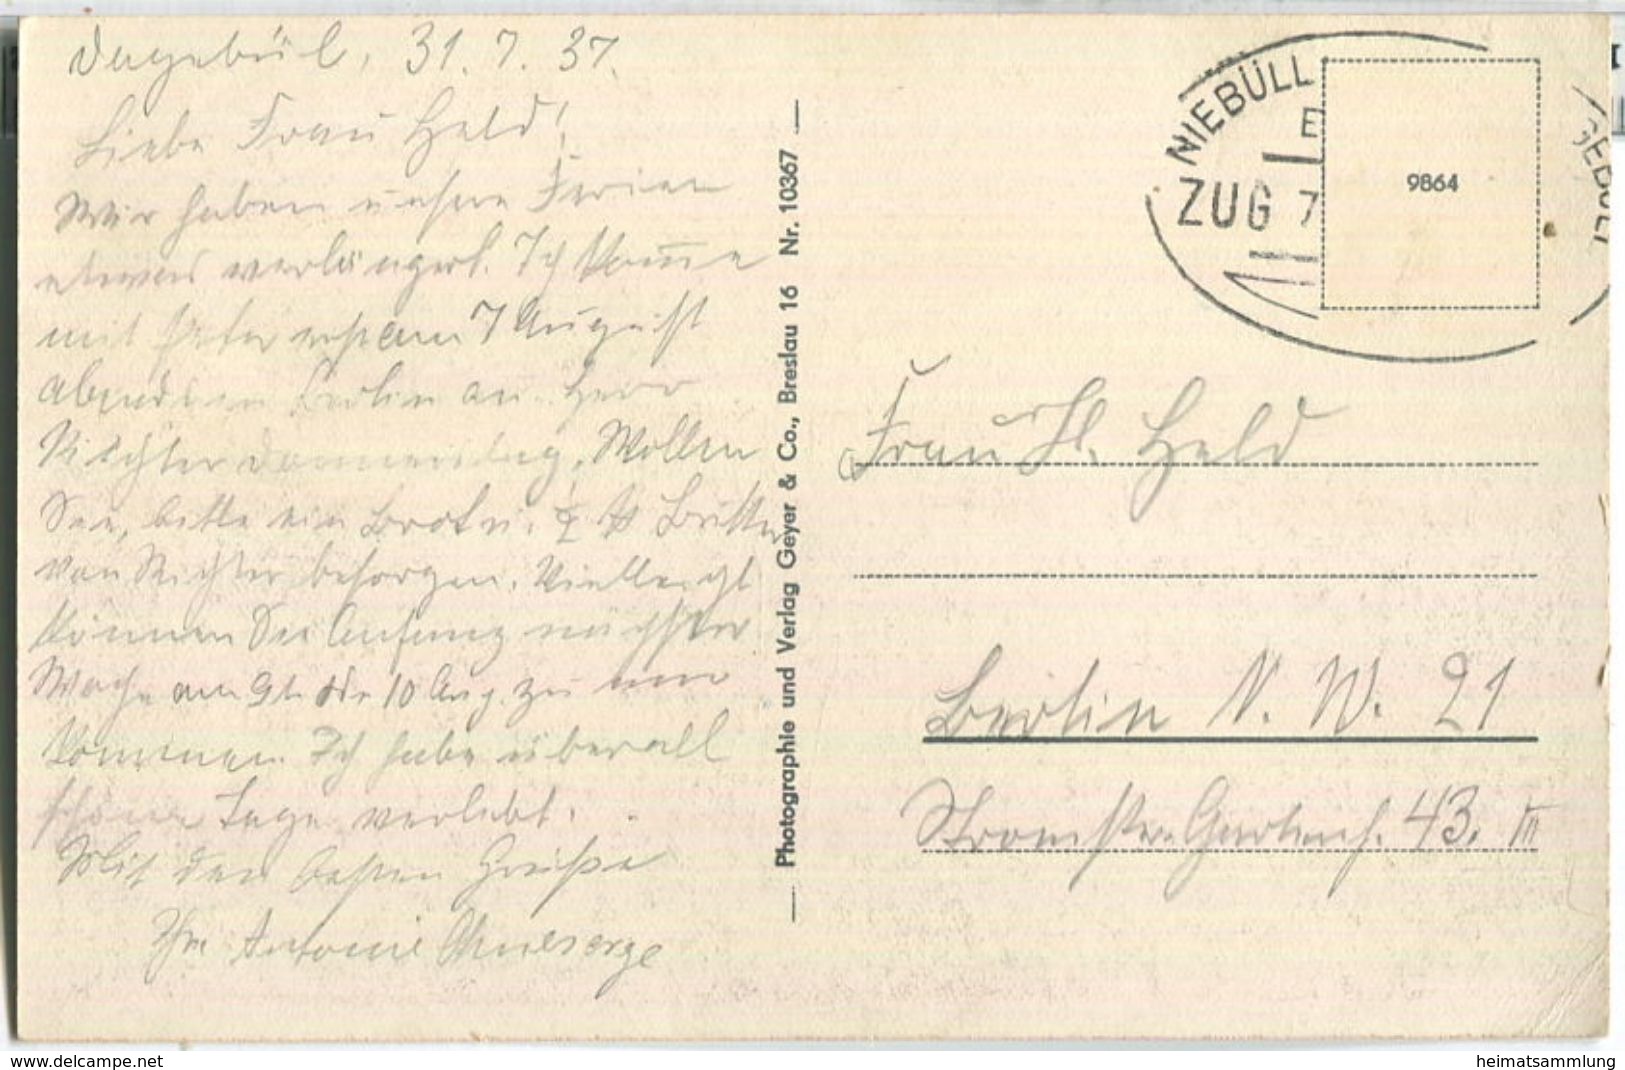 Dagebüll, 31. 7. 37.
Liebe Frau Held!
Wir haben unsere Ferien
etwas verlängert. Ich komme
mit Peter erst am 7 August
abends in Berlin an. Herr
Richter Wollen
Sie, bitte ein Brot u. ½ ℔ Butter
von Richter besorgen. Vielleicht
können Sie Anfang nächster
Woche am 9t. oder 10 Aug. zu mir
kommen. Ich habe überall
schöne Tage verlebt.
Mit den besten Grüße
Ihre Antonie
— Photographie und Verlag Geyer & Co., Breslau 16 Nr. 10367 —
NIEBÜLL
ZUG 7
GEBÜLL
9864
Frau Fl. Held
Berlin N. W. 21
Stromstr. Gartenh. 43. III
www.delcampe.net
heimatsammlung